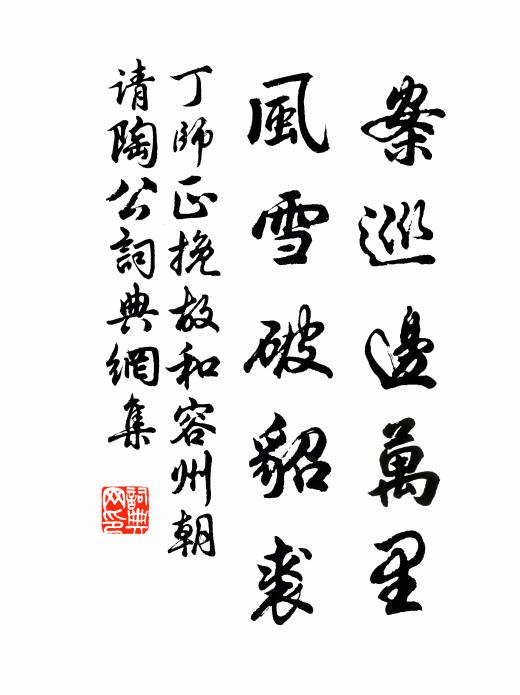 案巡邊萬里
風雪破貂裘
丁師正挽故和容州朝
请陶公詞典網集
詞典網印